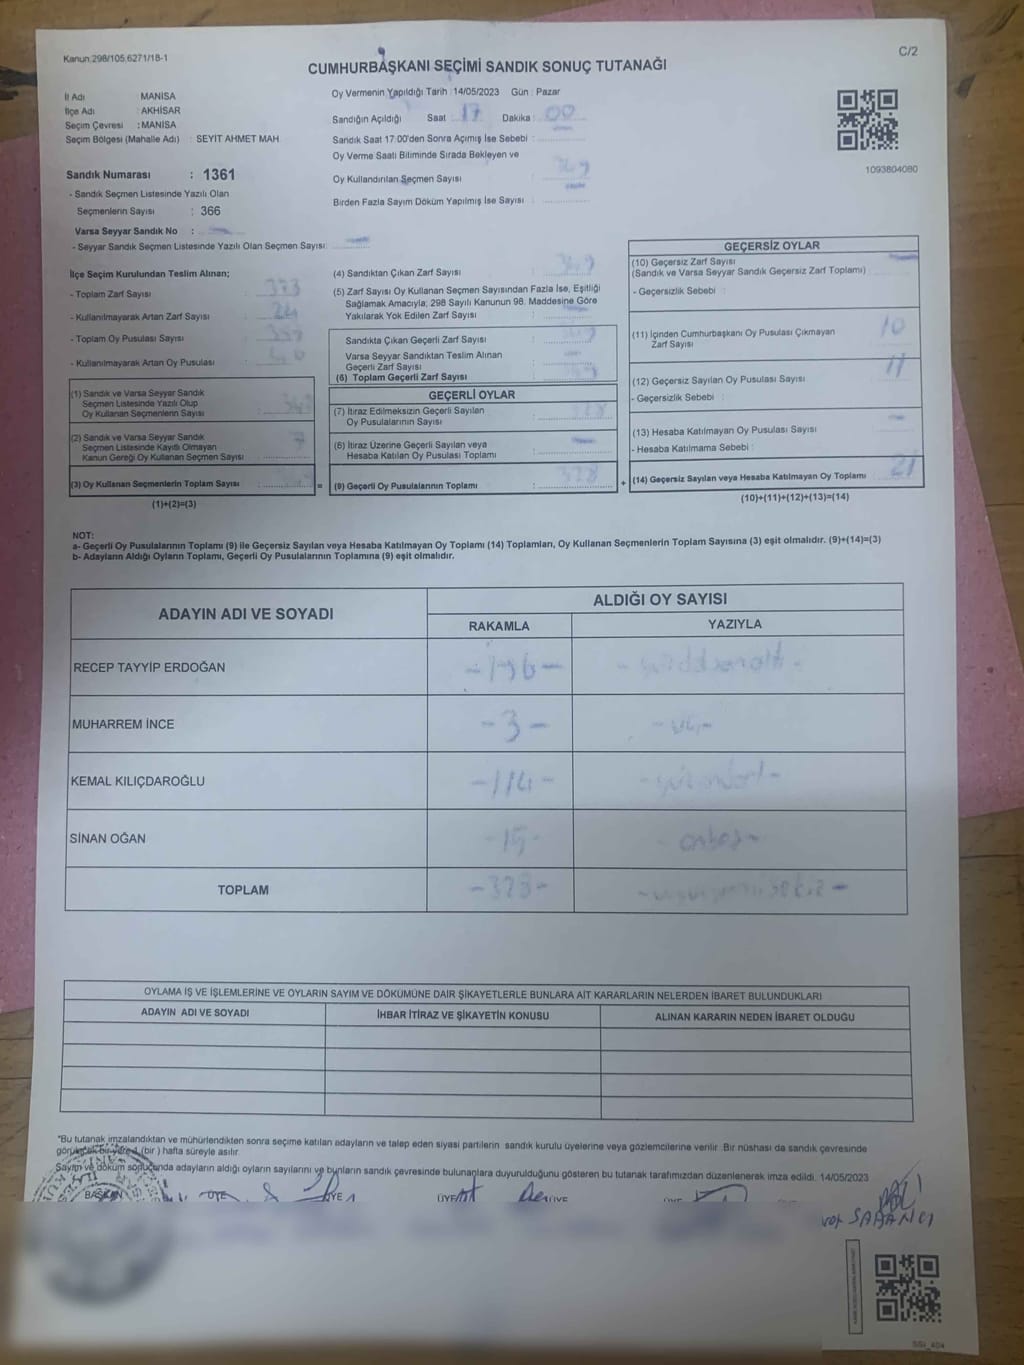 Kanun.298/105.6271/18-1
C/2
CUMHURBAŞKANI SEÇİMİ SANDIK SONUÇ TUTANAĞI
İl Adı MANİSA
İlçe Adı : AKHİSAR
Seçim Çevresi : MANİSA
Seçim Bölgesi (Mahalle Adı) : SEYİT AHMET MAH
Sandık Numarası : 1361
- Sandık Seçmen Listesinde Yazılı Olan
Seçmenlerin Sayısı : 366
Varsa Seyyar Sandık No :
- Seyyar Sandık Seçmen Listesinde Yazılı Olan Seçmen Sayısı:
Oy Vermenin Yapıldığı Tarih : 14/05/2023 Gün : Pazar
Sandığın Açıldığı Saat : 17 Dakika : 00
Sandık Saat 17:00'den Sonra Açımış İse Sebebi :
Oy Verme Saati Bitiminde Sırada Bekleyen ve
Oy Kullandırılan Seçmen Sayısı :
Birden Fazla Sayım Döküm Yapılmış İse Sayısı :
1093804080
İlçe Seçim Kurulundan Teslim Alınan;
- Toplam Zarf Sayısı : 373
- Kullanılmayarak Artan Zarf Sayısı : 24
- Toplam Oy Pusulası Sayısı :
- Kullanılmayarak Artan Oy Pusulası :
(1) Sandık ve Varsa Seyyar Sandık
Seçmen Listesinde Yazılı Olup
Oy Kullanan Seçmenlerin Sayısı :
(2) Sandık ve Varsa Seyyar Sandık
Seçmen Listesinde Kayıtlı Olmayan
Kanun Gereği Oy Kullanan Seçmen Sayısı : 7
(3) Oy Kullanan Seçmenlerin Toplam Sayısı : =
(1)+(2)=(3)
(4) Sandıktan Çıkan Zarf Sayısı : 349
(5) Zarf Sayısı Oy Kullanan Seçmen Sayısından Fazla İse, Eşitliği
Sağlamak Amacıyla; 298 Sayılı Kanunun 98. Maddesine Göre
Yakılarak Yok Edilen Zarf Sayısı :
Sandıkta Çıkan Geçerli Zarf Sayısı : 349
Varsa Seyyar Sandıktan Teslim Alınan
Geçerli Zarf Sayısı
(6) Toplam Geçerli Zarf Sayısı : 349
GEÇERLİ OYLAR
(7) İtiraz Edilmeksizin Geçerli Sayılan
Oy Pusulalarının Sayısı : 328
(8) İtiraz Üzerine Geçerli Sayılan veya
Hesaba Katılan Oy Pusulası Toplamı :
(9) Geçerli Oy Pusulalarının Toplamı : 328 +
GEÇERSİZ OYLAR
(10) Geçersiz Zarf Sayısı
(Sandık ve Varsa Seyyar Sandık Geçersiz Zarf Toplamı)
- Geçersizlik Sebebi :
(11) İçinden Cumhurbaşkanı Oy Pusulası Çıkmayan
Zarf Sayısı 10
(12) Geçersiz Sayılan Oy Pusulası Sayısı 11
- Geçersizlik Sebebi :
(13) Hesaba Katılmayan Oy Pusulası Sayısı
- Hesaba Katılmama Sebebi :
(14) Geçersiz Sayılan veya Hesaba Katılmayan Oy Toplamı 21
(10)+(11)+(12)+(13)=(14)
NOT:
a- Geçerli Oy Pusulalarının Toplamı (9) ile Geçersiz Sayılan veya Hesaba Katılmayan Oy Toplamı (14) Toplamları, Oy Kullanan Seçmenlerin Toplam Sayısına (3) eşit olmalıdır. (9)+(14)=(3)
b- Adayların Aldığı Oyların Toplamı, Geçerli Oy Pusulalarının Toplamına (9) eşit olmalıdır.
ADAYIN ADI VE SOYADI ALDIĞI OY SAYISI
RAKAMLA YAZIYLA
RECEP TAYYİP ERDOĞAN -196-
MUHARREM İNCE -3- -üç-
KEMAL KILIÇDAROĞLU -114-
SİNAN OĞAN -15- onbeş-
TOPLAM -328-
OYLAMA İŞ VE İŞLEMLERİNE VE OYLARIN SAYIM VE DÖKÜMÜNE DAİR ŞİKAYETLERLE BUNLARA AİT KARARLARIN NELERDEN İBARET BULUNDUKLARI
ADAYIN ADI VE SOYADI İHBAR İTİRAZ VE ŞİKAYETİN KONUSU ALINAN KARARIN NEDEN İBARET OLDUĞU
*Bu tutanak imzalandıktan ve mühürlendikten sonra seçime katılan adayların ve talep eden siyasi partilerin sandık kurulu üyelerine veya gözlemcilerine verilir. Bir nüshası da sandık çevresinde
görülecek bir yere 1 (bir ) hafta süreyle asılır.
Sayım ve döküm sonucunda adayların aldığı oyların sayılarını ve bunların sandık çevresinde bulunanlara duyurulduğunu gösteren bu tutanak tarafımızdan düzenlenerek imza edildi. 14/05/2023
BAŞKAN ÜYE ÜYE ÜYE ÜYE
SABANCI